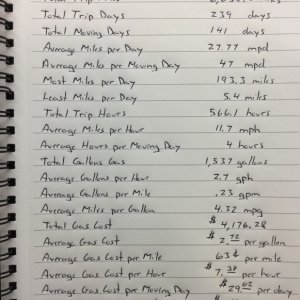 Total Trip Days 239 days
Total Moving Days 141 days
Average Miles per Day 27.77 mpd
Average Miles per Moving Day 47 mpd
Most Miles per Day 193.3 miles
Least Miles per Day 5.4 miles
Total Trip Hours 566.1 hours
Average Miles per Hour 11.7 mph
Average Hours per Moving Day 4 hours
Total Gallons Gas 1,537 gallons
Average Gallons per Hour 2.7 gph
Average Gallons per Mile .23 gpm
Average Miles per Gallon 4.32 mpg
Total Gas Cost $4,176.28
Average Gas Cost $2.72 per gallon
Average Gas Cost per Mile 63¢ per mile
Average Gas Cost per Hour $7.38 per hour
Average Gas Cost per Moving Day $29.62 per day